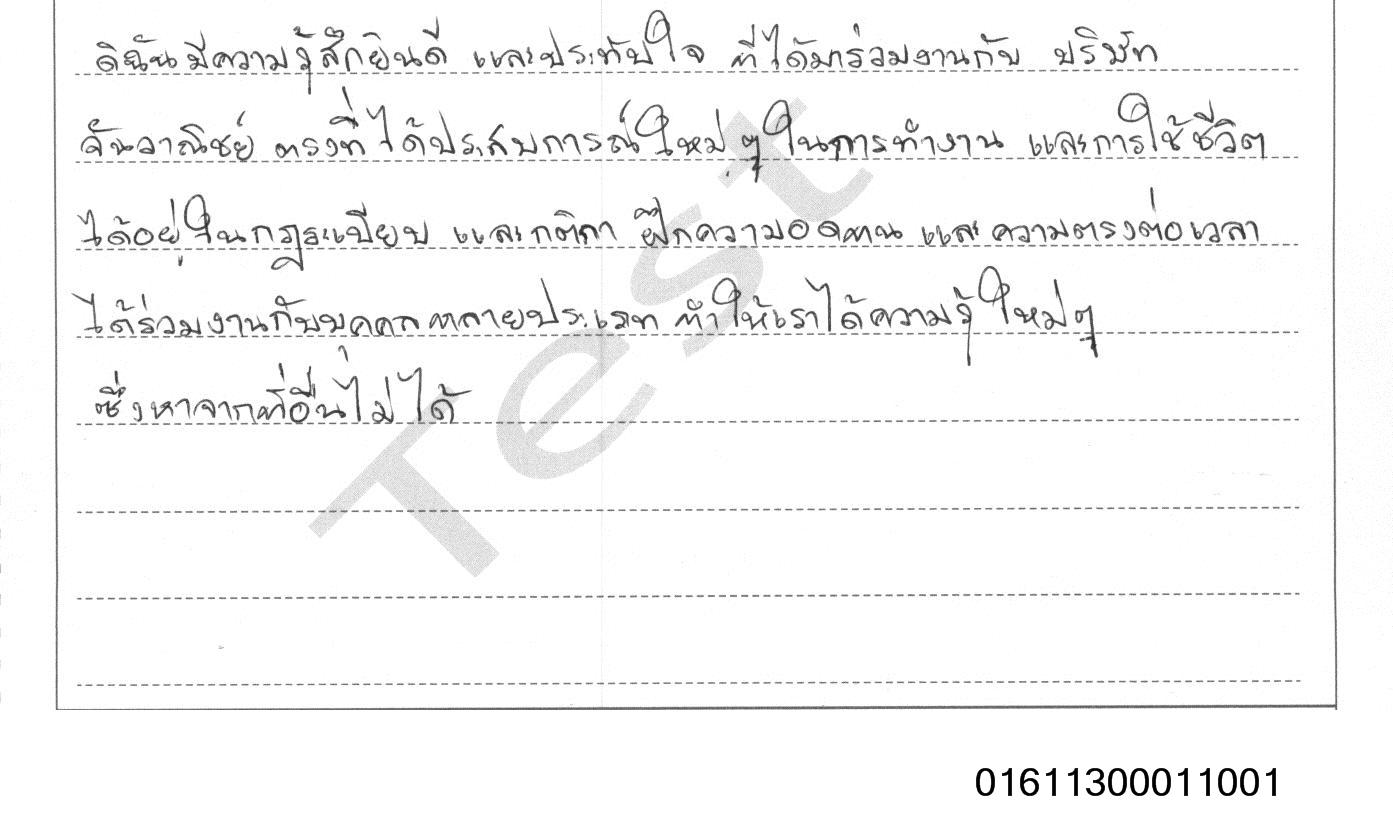 ดิฉันมีความรู้สึกยินดี และประทับใจ ที่ได้มาร่วมงานกับ บริษัท
จันวาณิชย์ ตรงที่ได้ประสบการณ์ใหม่ๆ ในการทำงาน และการใช้ชีวิต
ได้อยู่ในกฎระเบียบ และกติกา ฝึกความอดทน และ ความตรงต่อเวลา
ได้ร่วมงานกับบุคคลหลายประเภท ทำให้เราได้ความรู้ใหม่ๆ
ซึ่งหาจากที่อื่นไม่ได้
Test
01611300011001